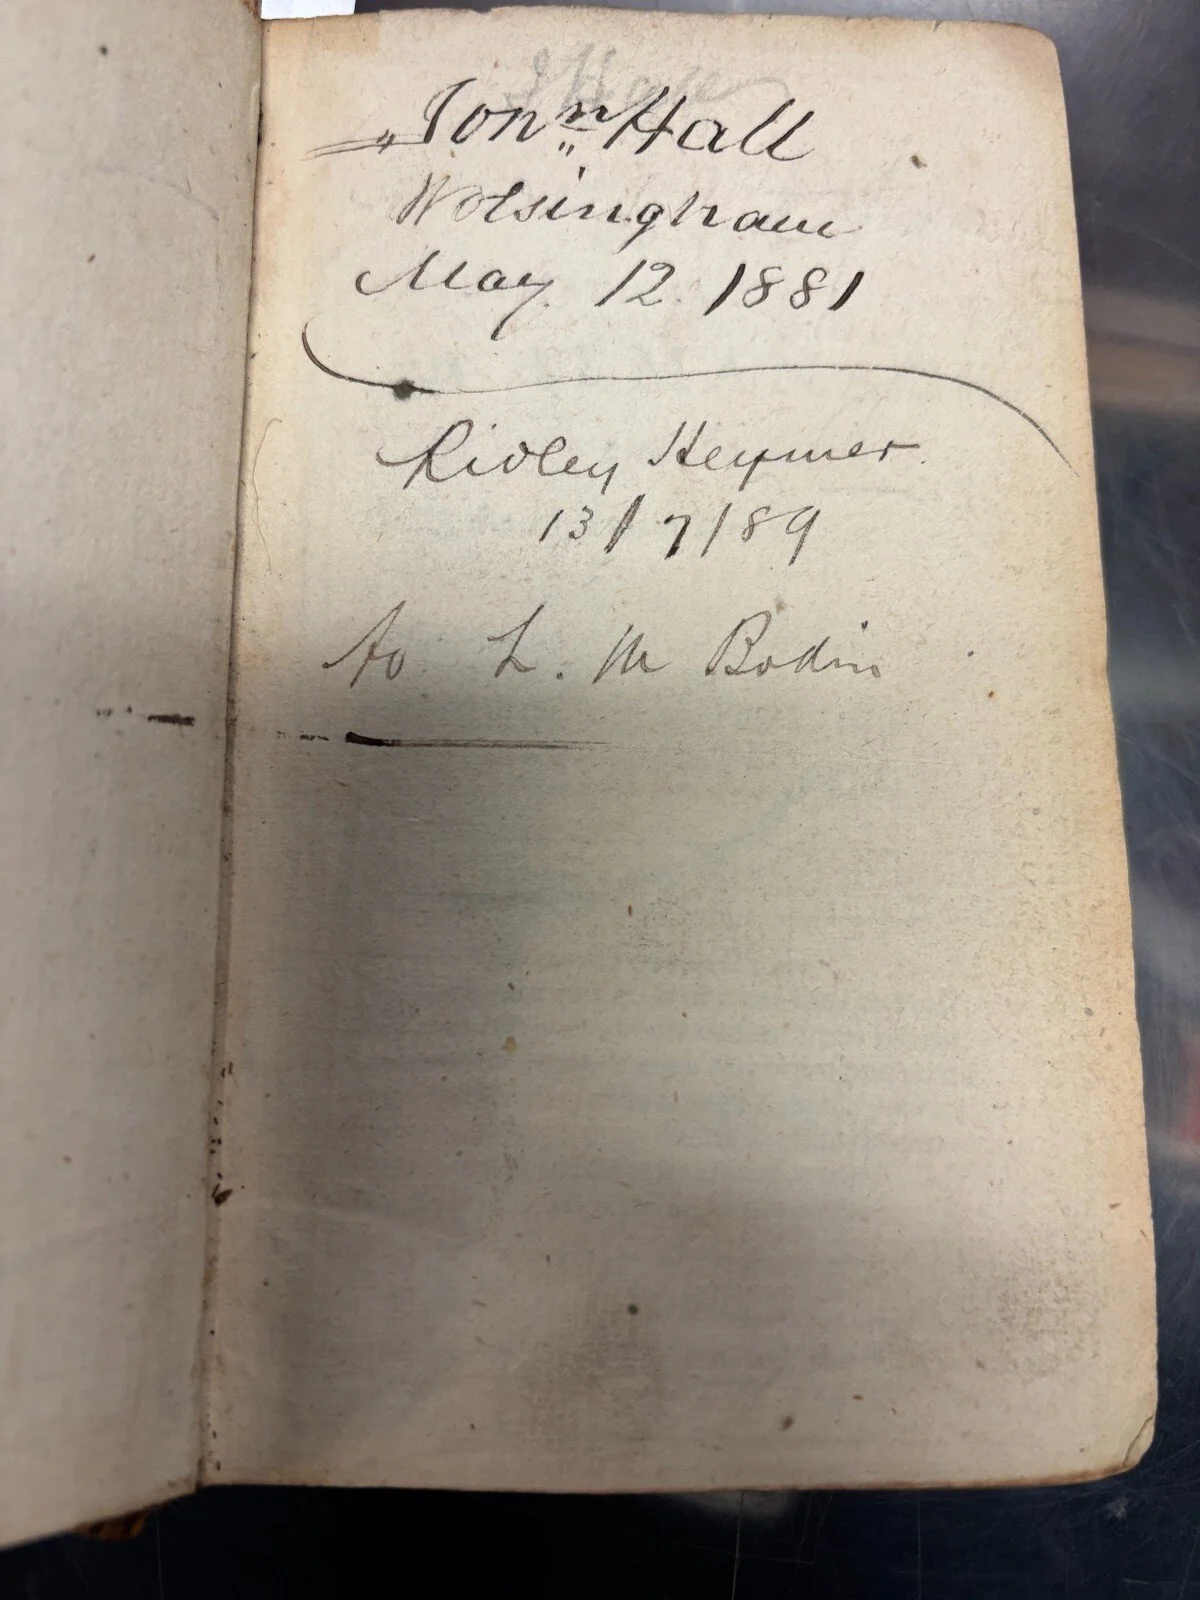 J Hall
Jonn Hall
Wolsingham
May 12 1881
Ridley Heymer
13/7/89
to L. M Bodin